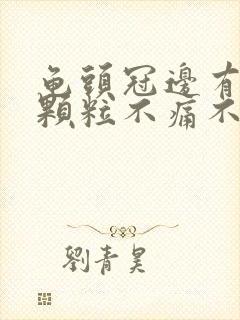 龜頭冠邊有
顆粒不痛不
劉青昊